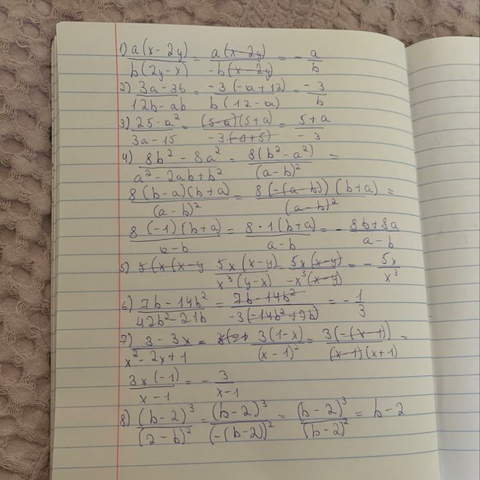 1) a(x-2y)/b(2y-x) = a(x-2y)/-b(x-2y) = - a/b
2) 3a-36/12b-ab = -3(-a+12)/b(12-a) = -3/b
3) 25-a²/3a-15 = (5-a)(5+a)/-3(-a+5) = 5+a/-3
4) 8b²-8a²/a²-2ab+b² = 8(b²-a²)/(a-b)² =
8(b-a)(b+a)/(a-b)² = 8(-(a-b))(b+a)/(a-b)² =
8·(-1)(b+a)/a-b = 8·1(b+a)/a-b = - 8b+8a/a-b
5) 5x(x-y)/x³(y-x) = 5x(x-y)/-x³(x-y) = - 5x/x³
6) 7b-14b²/42b²-21b = 7b-14b²/-3(-14b²+7b) = - 1/3
7) 3-3x/x²-2x+1 = 3(1-x)/(x-1)² = 3(-(x-1))/(x-1)(x+1) =
3x(-1)/x-1 = - 3/x-1
8) (b-2)³/(2-b)² = (b-2)³/(-(b-2))² = (b-2)³/(b-2)² = b-2